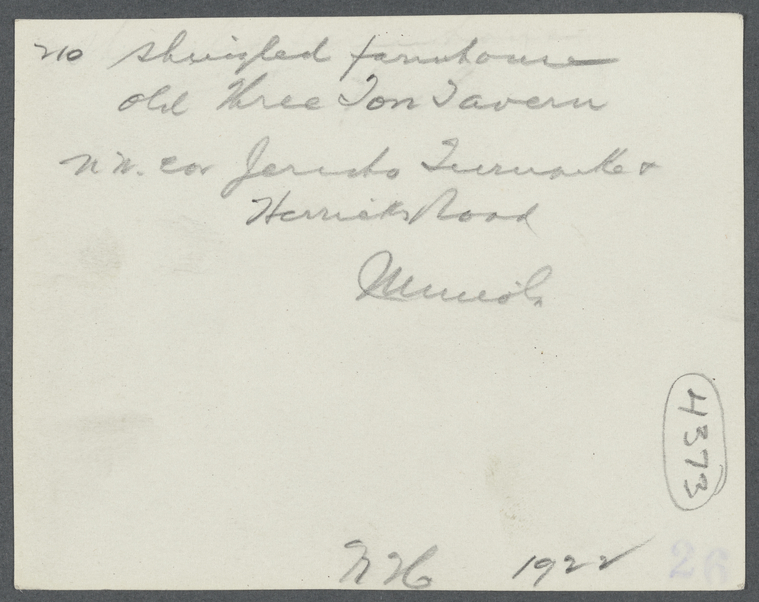 210 shingled farmhouse
old Three Ton Tavern
N.W. cor Jericho Turnpike &
Herricks Road
Mineola
4373
N H 1922
26